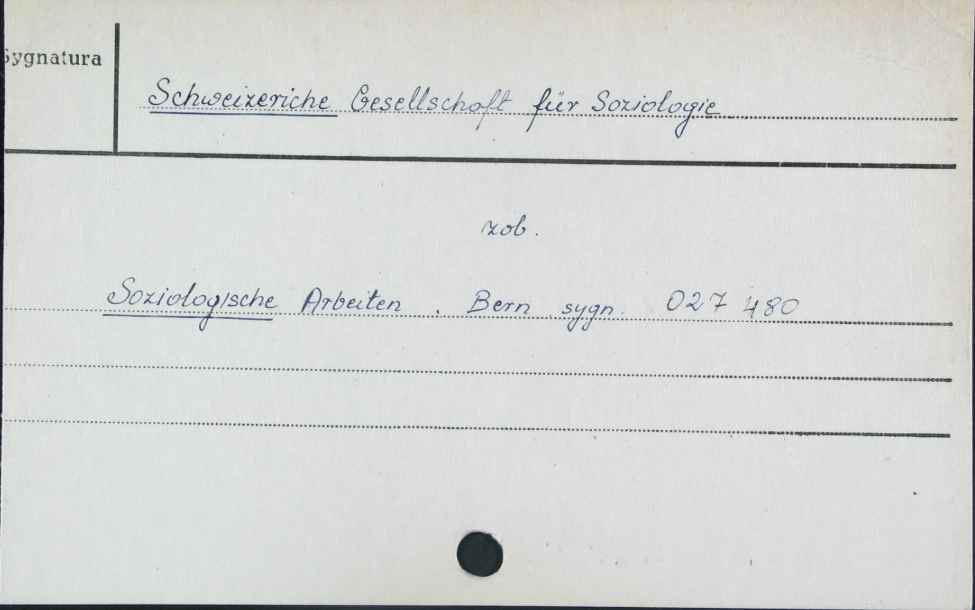 Sygnatura
Schweizeriche Gesellschaft für Soziologie
zob.
Soziologische Arbeiten. Bern sygn. 027 480